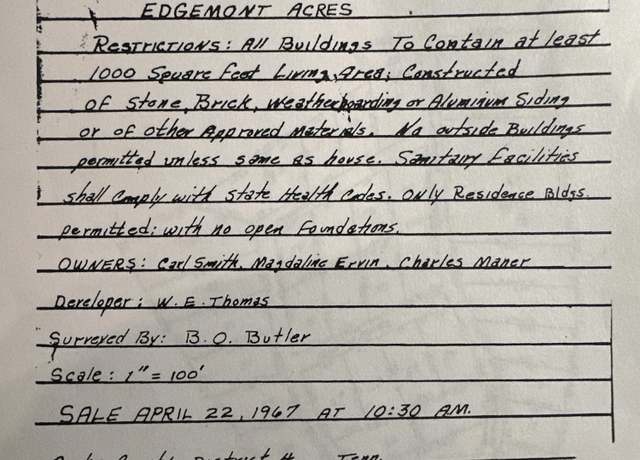 EDGEMONT ACRES
RESTRICTIONS: All Buildings To Contain at least
1000 Square feet Living Area; Constructed
of Stone, Brick, weatherboarding or Aluminum Siding
or of other Approved materials. No outside Buildings
permitted unless same as house. Sanitary facilities
shall comply with State Health Codes. ONLY Residence Bldgs.
permitted; with no open foundations.
OWNERS: Carl Smith, Magdaline Ervin, Charles Maner
Developer: W. E. Thomas
Surveyed By: B. O. Butler
Scale: 1" = 100'
SALE APRIL 22, 1967 AT 10:30 AM.
District Tenn.